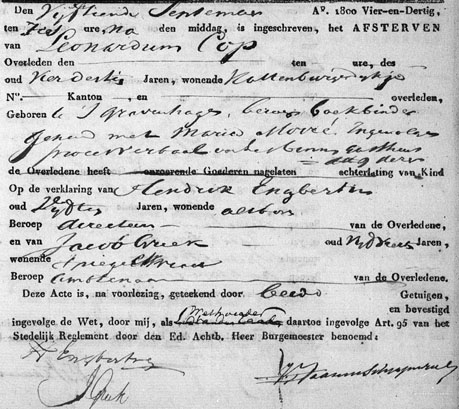 Den Vijftiende September Ao. 1800 Vier-en-Dertig,
ten Tien ure, na den middag, is ingeschreven, het AFSTERVEN
van Leonardum Cop
Overleden den ten ure, des
oud Vier Dertig Jaren, wonende Kattenburgerdijkje
No. Kanton, en overleden,
Geboren te S'gravenhage, beroep boekbinder
gehuwd met Maria Morré, Ingevolge
proces verbaal van het Binnen Gasthuis
dag dezer
de Overledene heeft onroerende Goederen nagelaten achterlating van Kind
Op de verklaring van Hendrik Engberting
oud Jaren, wonende aldaar
Beroep directeur van de Overledene,
en van Jacob oud Jaren,
wonende
Beroep Amptenaar van de Overledene.
Deze Acte is, na voorlezing, geteekend door beide Getuigen,
en bevestigd
ingevolge de Wet, door mij, als Wethouder daartoe ingevolge Art. 95 van het
Stedelijk Reglement door den Ed. Achtb. Heer Burgemeester benoemd:
H Engberting